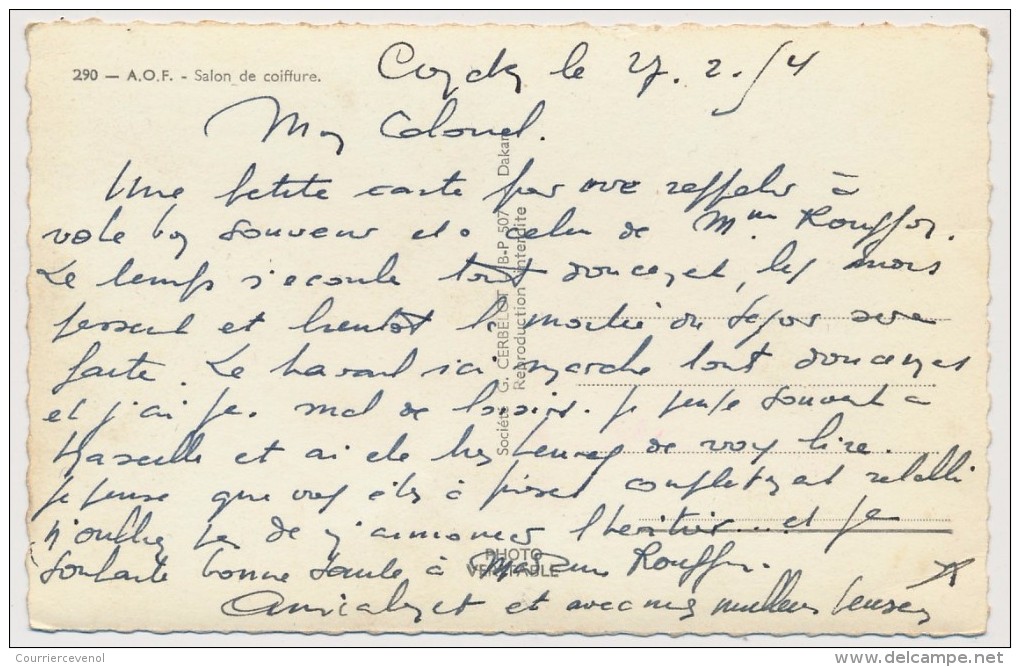 290 — A.O.F. - Salon de coiffure.
le 27.2.54
Mon Colonel.
Une petite carte pour me rappeler à
votre bon souvenir et à celui de Mme Rouffon.
Le temps s'écoule tout doucement, les mois
passent et bientôt la moitié du séjour sera
faite. Le travail ici marche tout doucement
et j'ai pas mal de loisirs. Je pense souvent à
Marseille et ai été très heureux de vous lire.
Je pense que vous êtes à présent complètement rétabli
n'oubliez pas de m'annoncer l'héritier... et je
souhaite bonne santé à Madame Rouffon.
Amicalement et avec mes meilleurs pensées
Société G. CERBELOT B-P 507 Dakar
Reproduction interdite
PHOTO
VERITABLE
Courriercevenol
www.delcampe.net